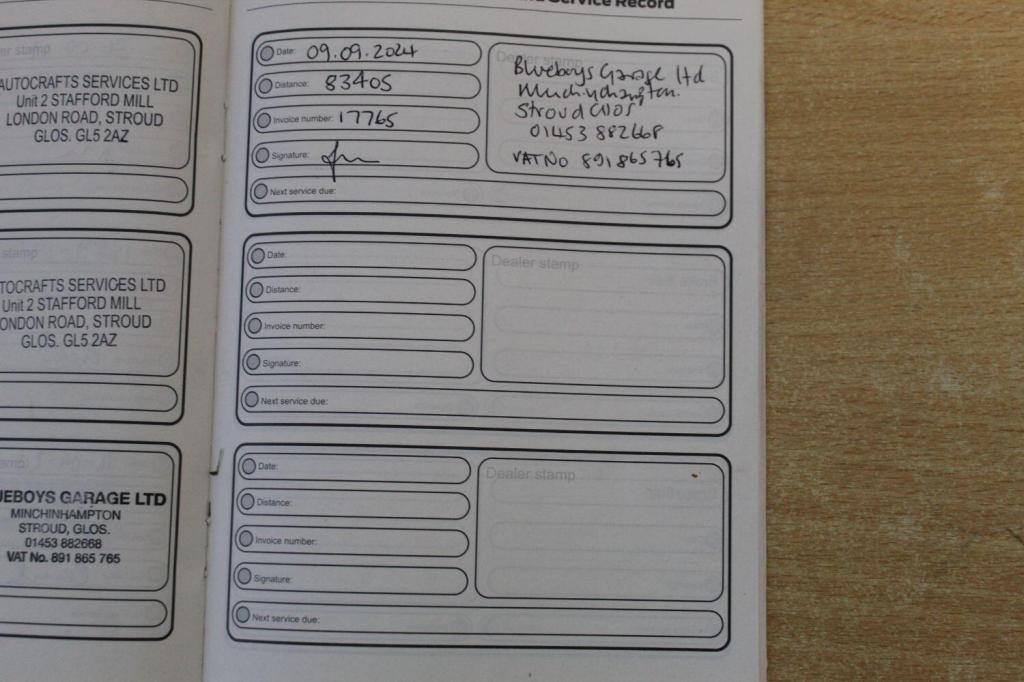 Service Record
er stamp
AUTOCRAFTS SERVICES LTD
Unit 2 STAFFORD MILL
LONDON ROAD, STROUD
GLOS. GL5 2AZ
stamp
TOCRAFTS SERVICES LTD
Unit 2 STAFFORD MILL
ONDON ROAD, STROUD
GLOS. GL5 2AZ
UEBOYS GARAGE LTD
MINCHINHAMPTON
STROUD, GLOS.
01453 882668
VAT No. 891 865 765
Date: 09.09.2024
Distance: 83405
Invoice number: 17765
Signature:
Next service due:
Dealer stamp
Blueboys Garage Ltd
Minchinhampton.
Stroud Glos
01453 882668
VAT No 891865765
Date:
Distance:
Invoice number:
Signature:
Next service due:
Dealer stamp
Date:
Distance:
Invoice number:
Signature:
Next service due:
Dealer stamp